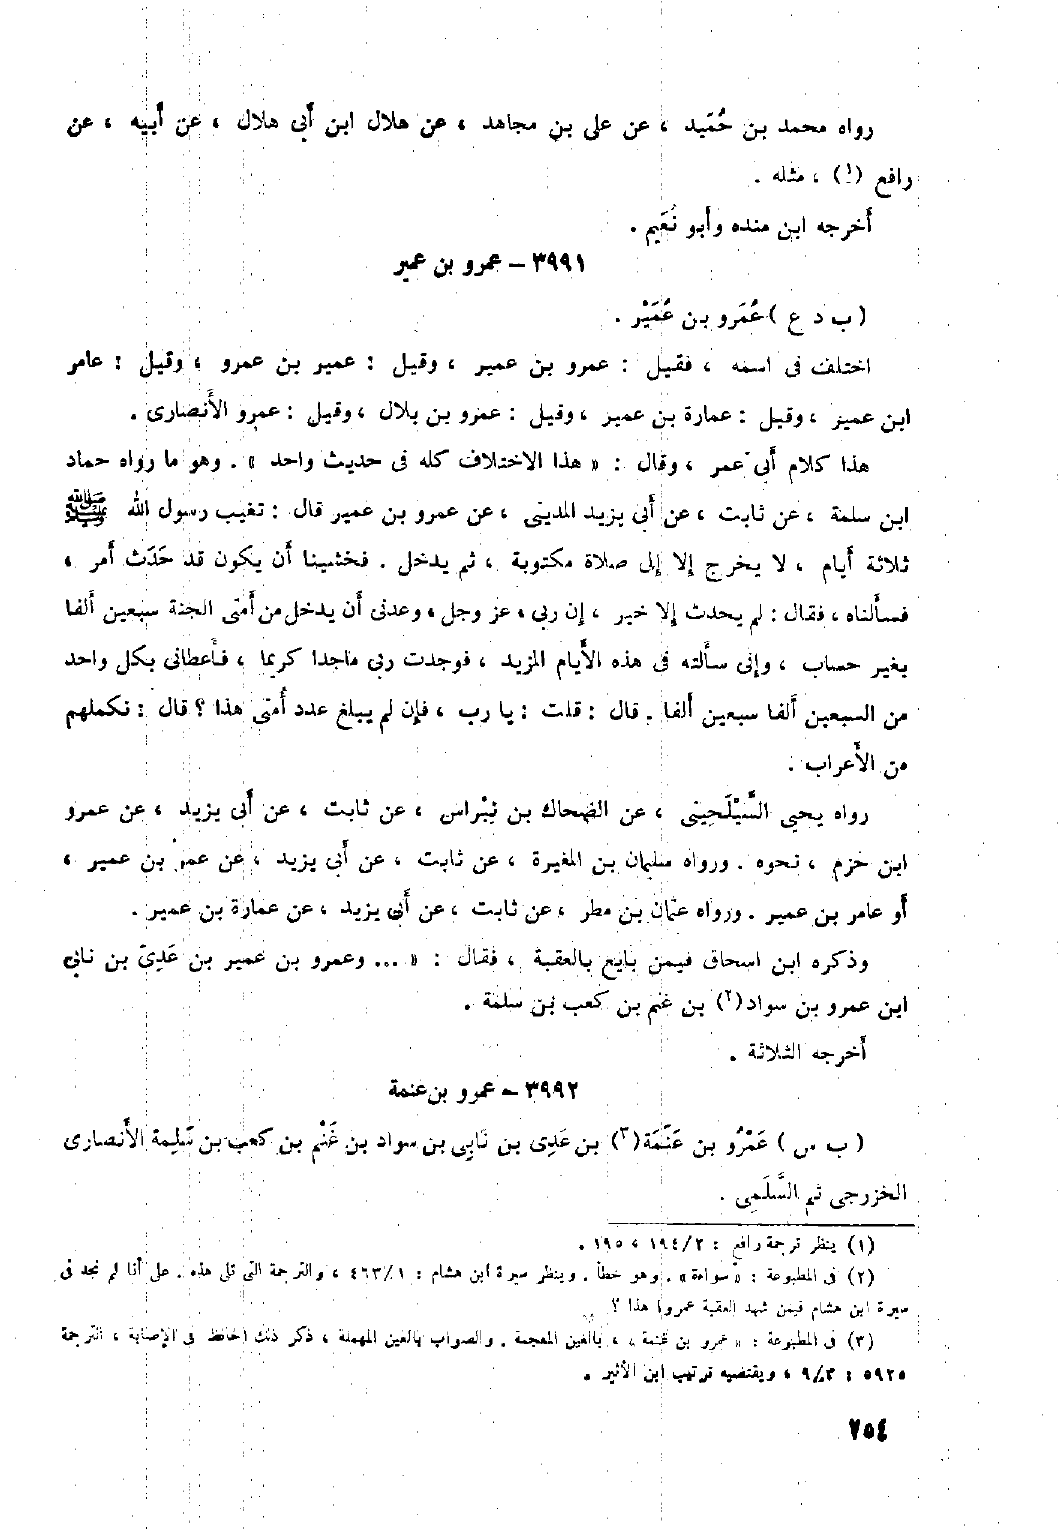 رواه محمد بن حُمَيد ، عن على بن مجاهد ، عن هلال ابن أبى هلال ، عن أبيه ، عن
رافع (١) ، مثله .
أخرجه ابن منده وأبو نُعَيم .
٣٩٩١ – عمرو بن عمير
( ب د ع ) عُمَرو بن عُمَيْر .
اختلف فى اسمه ، فقيل : عمرو بن عمير ، وقيل : عمير بن عمرو ، وقيل : عامر
ابن عمير ، وقيل : عمارة بن عمير ، وقيل : عمرو بن بلال ، وقيل : عمرو الأنصارى .
هذا كلام أبى عمر ، وقال : « هذا الاختلاف كله فى حديث واحد » . وهو ما رواه حماد
ابن سلمة ، عن ثابت ، عن أبى يزيد المدينى ، عن عمرو بن عمير قال : تغيب رسول الله ﷺ
ثلاثة أيام ، لا يخرج إلا إلى صلاة مكتوبة ، ثم يدخل . فخشينا أن يكون قد حَدَث أمر ،
فسألناه ، فقال : لم يحدث إلا خير ، إن ربى ، عز وجل ، وعدنى أن يدخل من أمتى الجنة سبعين ألفا
بغير حساب ، وإنى سألته فى هذه الأيام المزيد ، فوجدت ربى ماجدا كريما ، فأعطانى بكل واحد
من السبعين ألفا سبعين ألفا . قال : قلت : يا رب ، فإن لم يبلغ عدد أُمتى هذا ؟ قال : نكملهم
من الأعراب .
رواه يحيى السَّيْلَحِينى ، عن الضحاك بن نِبْراس ، عن ثابت ، عن أبى يزيد ، عن عمرو
ابن حزم ، نحوه . ورواه سليمان بن المغيرة ، عن ثابت ، عن أبى يزيد ، عن عمر بن عمير ،
أو عامر بن عمير . ورواه عثمان بن مطر ، عن ثابت ، عن أبى يزيد ، عن عمارة بن عمير .
وذكره ابن اسحاق فيمن بايع بالعقبة ، فقال : « ... وعمرو بن عمير بن عَدِىّ بن نابى
ابن عمرو بن سواد(٢) بن غنم بن كعب بن سلمة .
أخرجه الثلاثة .
٣٩٩٢ – عمرو بن عنمة
( ب س ) عَمْرُو بن عَنَمَة(٣) بن عَدِى بن نَابِى بن سواد بن غَنْم بن كعب بن سَلِمة الأنصارى
الخزرجى ثم السَّلَمِى .
(١) ينظر ترجمة رافع : ١٩٤/٢ ، ١٩٥ .
(٢) فى المطبوعة : « سواءة » . وهو خطأ . وينظر سيرة ابن هشام : ٤٦٣/١ ، والترجمة التى تلى هذه . على أنا لم نجد فى
سيرة ابن هشام فيمن شهد العقبة عمروا هذا ؟
(٣) فى المطبوعة : « عمرو بن غنمة » ، بالغين المعجمة . والصواب بالعين المهملة ، ذكر ذلك الحافظ فى الإصابة ، الترجمة
٥٩٢٥ : ٩/٣ ، ويقتضيه ترتيب ابن الأثير .
٢٥٤